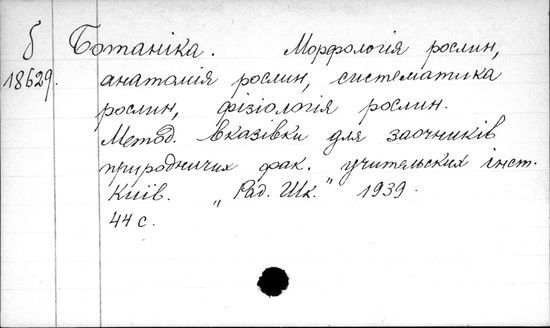 б Ботаніка. Морфологія рослин,
18629. анатомія рослин, систематика
рослин, фізіологія рослин.
Метод. вказівки для заочників
природничих фак. учительских інст.
Київ. „Рад. Шк." 1939.
44 с.